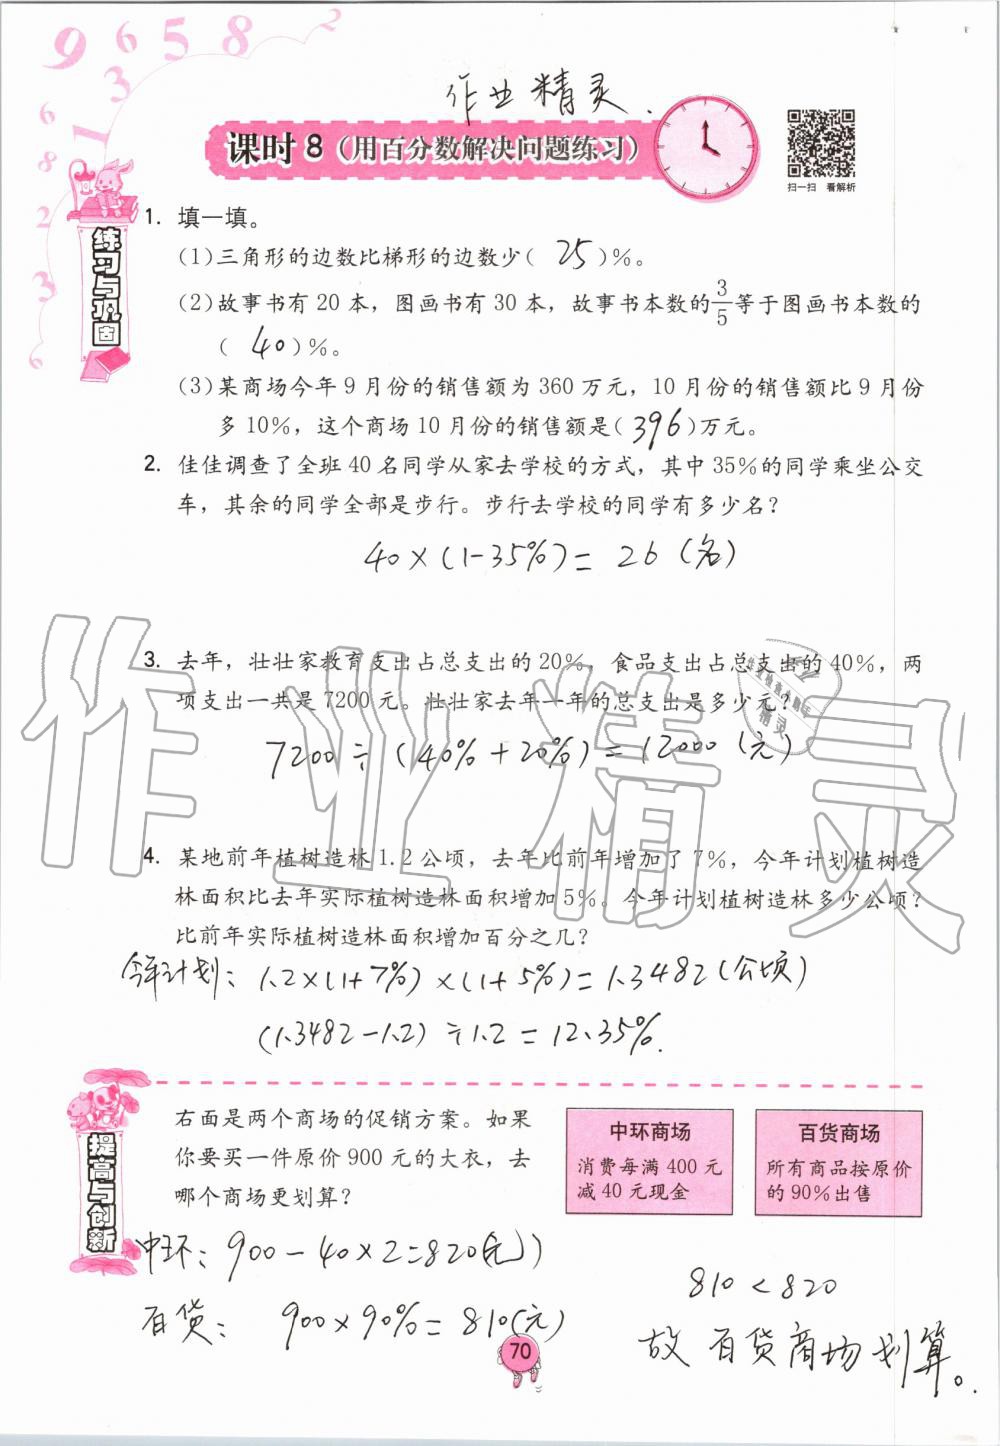 9 6 5 8 2
1 3
6
8
2
3
6
作业精灵.
课时8(用百分数解决问题练习)
扫一扫 看解析
练习与巩固
1. 填一填。
(1)三角形的边数比梯形的边数少( 25 )%。
(2)故事书有20本,图画书有30本,故事书本数的3/5等于图画书本数的
( 40 )%。
(3)某商场今年9月份的销售额为360万元,10月份的销售额比9月份
多10%,这个商场10月份的销售额是( 396 )万元。
2. 佳佳调查了全班40名同学从家去学校的方式,其中35%的同学乘坐公交
车,其余的同学全部是步行。步行去学校的同学有多少名?
40×(1-35%)= 26 (名)
3. 去年,壮壮家教育支出占总支出的20%,食品支出占总支出的40%,两
项支出一共是7200元。壮壮家去年一年的总支出是多少元?
7200÷(40%+20%)=12000(元)
4. 某地前年植树造林1.2公顷,去年比前年增加了7%,今年计划植树造
林面积比去年实际植树造林面积增加5%。今年计划植树造林多少公顷?
比前年实际植树造林面积增加百分之几?
今年计划: 1.2×(1+7%)×(1+5%)=1.3482(公顷)
(1.3482-1.2)÷1.2=12.35%.
提高与创新
右面是两个商场的促销方案。如果
你要买一件原价900元的大衣,去
哪个商场更划算?
中环商场
消费每满400元
减40元现金
百货商场
所有商品按原价
的90%出售
中环: 900-40×2=820(元))
百货: 900×90%=810(元)
810<820
故百货商场划算。
70
作业精灵